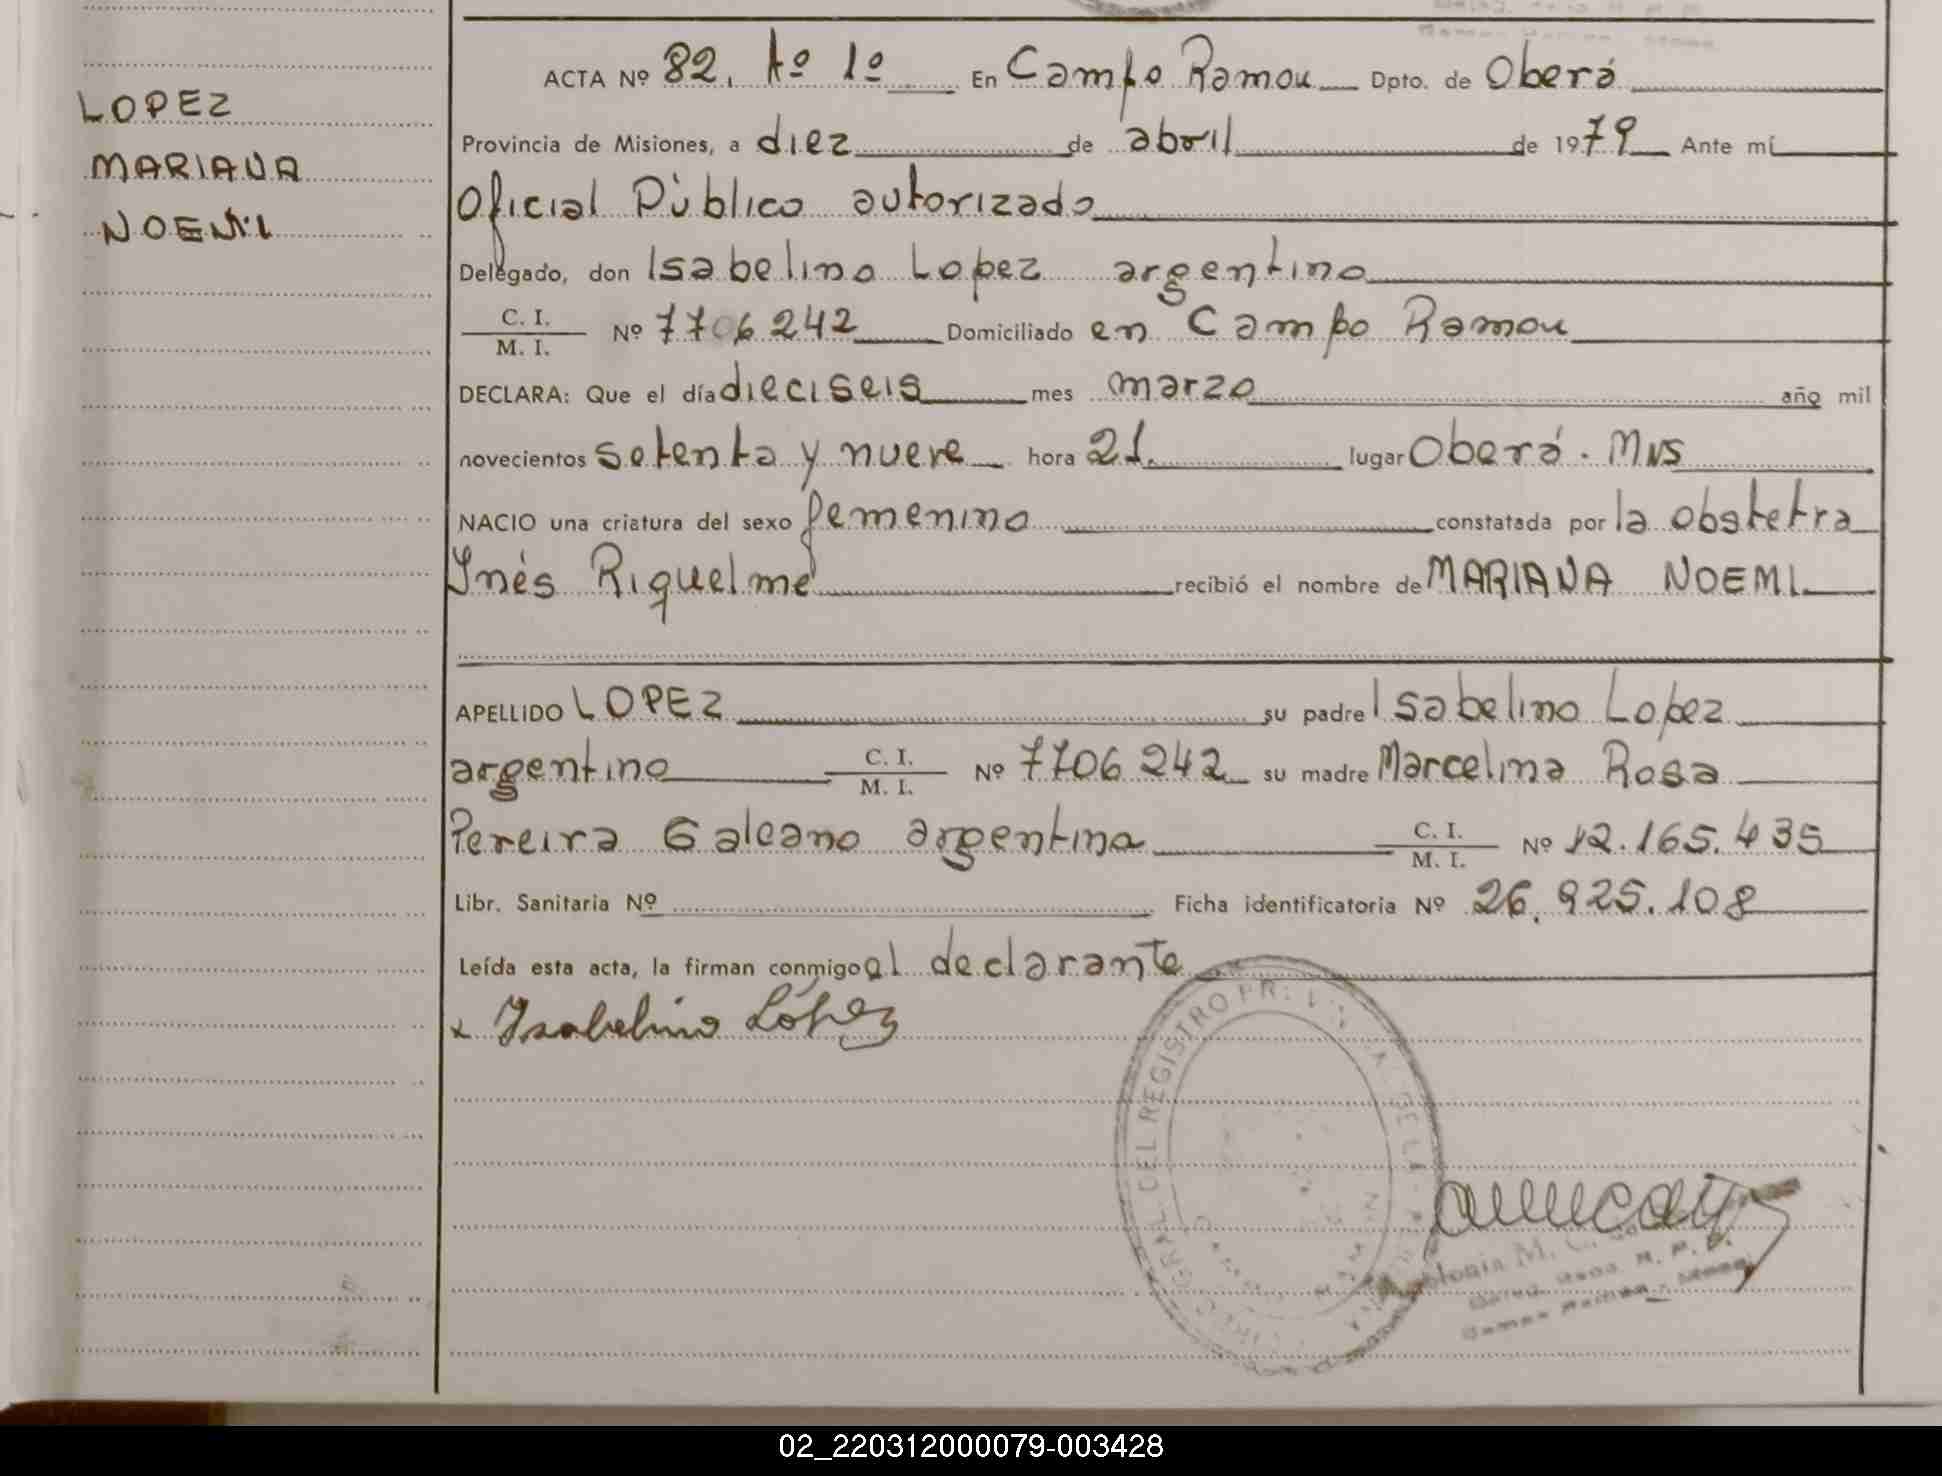 LOPEZ
MARIANA
NOEMI
ACTA Nº 82. Aº 1º En Campo Ramon Dpto. de Oberá
Provincia de Misiones, a diez de abril de 1979 Ante mí
Oficial Público autorizado
Delegado, don Isabelino Lopez argentino
C. I.
M. I. Nº 7706242 Domiciliado en Campo Ramon
DECLARA: Que el día dieciseis mes marzo año mil
novecientos setenta y nueve hora 21. lugar Oberá. Mns
NACIO una criatura del sexo femenino constatada por la obstetra
Inés Riquelme recibió el nombre de MARIANA NOEMI
APELLIDO LOPEZ su padre Isabelino Lopez
argentino C. I.
M. I. Nº 7706242 su madre Marcelina Rosa
Pereira Galeano argentina C. I.
M. I. Nº 12.165.435
Libr. Sanitaria Nº Ficha identificatoria Nº 26.925.108
Leída esta acta, la firman conmigo el declarante
x Isabelino López
GRAL. DEL REGISTRO
02_220312000079-003428